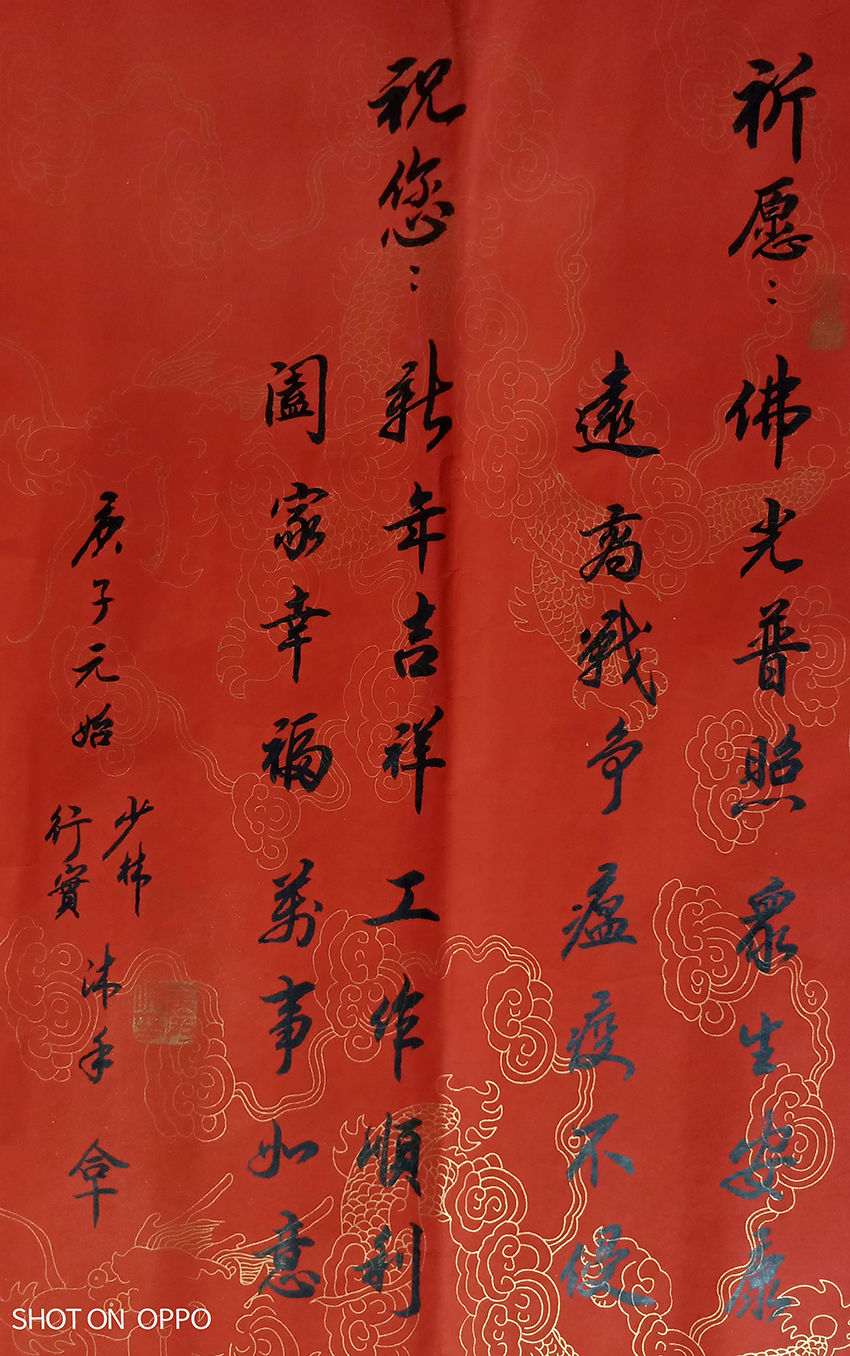 祈愿：佛光普照眾生安康
遠离戰争瘟疫不侵
祝您：新年吉祥工作順利
阖家幸福萬事如意
庚子元始
少林
行實
沐手
SHOT ON OPPO